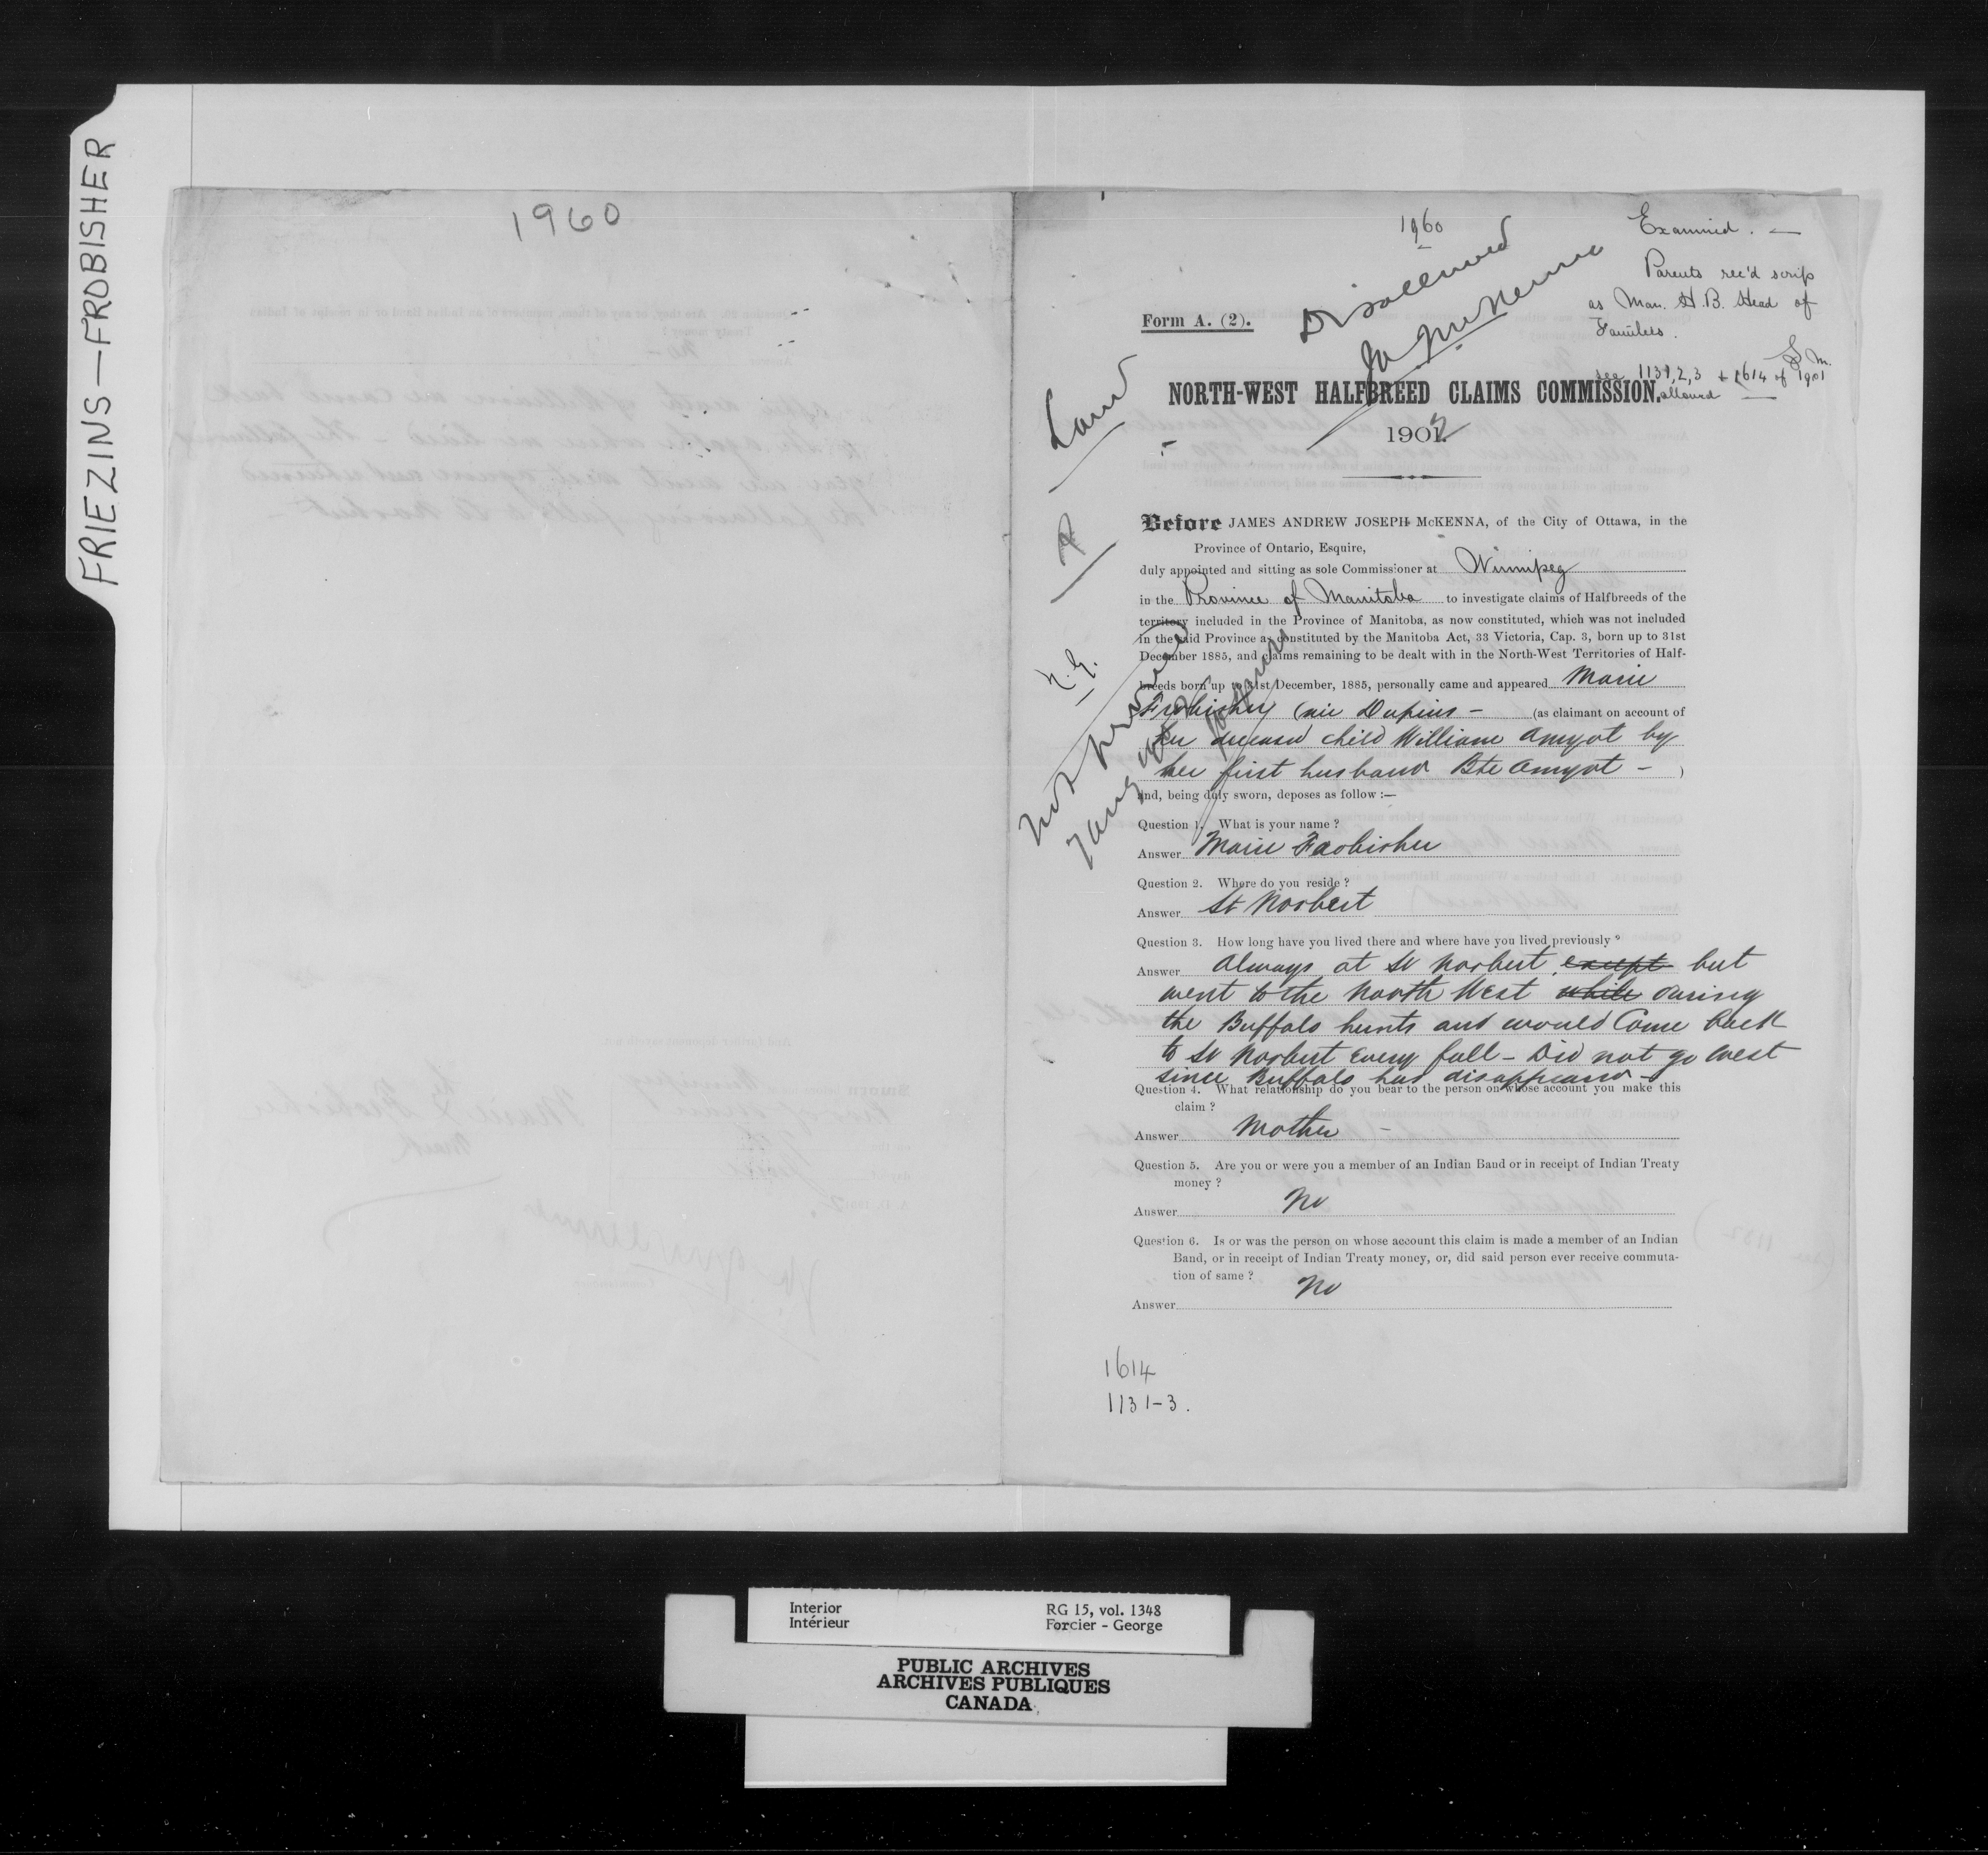 FRIEZINS—FROBISHER
1960
1960
Examined. —
Parents rec'd scrip
as Man. H.B. Head of
Families.
S M.
see 1131,2,3 + 1614 of 1901
allowed
Disallowed
Form A. (2).
NORTH-WEST HALFBREED CLAIMS COMMISSION.
1902
Before JAMES ANDREW JOSEPH McKENNA, of the City of Ottawa, in the
Province of Ontario, Esquire,
duly appointed and sitting as sole Commissioner at Winnipeg
in the Province of Manitoba to investigate claims of Halfbreeds of the
territory included in the Province of Manitoba, as now constituted, which was not included
in the said Province as constituted by the Manitoba Act, 33 Victoria, Cap. 3, born up to 31st
December 1885, and claims remaining to be dealt with in the North-West Territories of Half-
breeds born up to 31st December, 1885, personally came and appeared Marie
Frobisher (née Dupuis — (as claimant on account of
her deceased child William Amyot by
her first husband Bte Amyot — )
and, being duly sworn, deposes as follow :—
Question 1. What is your name ?
Answer Marie Frobisher
Question 2. Where do you reside ?
Answer St Norbert
Question 3. How long have you lived there and where have you lived previously ?
Answer Always at St Norbert, except but
went to the North West while during
the Buffalo hunts and would come back
to St Norbert every fall – Did not go west
since Buffalo has disappeared –
Question 4. What relationship do you bear to the person on whose account you make this
claim ?
Answer Mother –
Question 5. Are you or were you a member of an Indian Band or in receipt of Indian Treaty
money ?
Answer No
Question 6. Is or was the person on whose account this claim is made a member of an Indian
Band, or in receipt of Indian Treaty money, or, did said person ever receive commuta-
tion of same ?
Answer No
1614
1131-3.
Interior RG 15, vol. 1348
Intérieur Forcier - George
PUBLIC ARCHIVES
ARCHIVES PUBLIQUES
CANADA